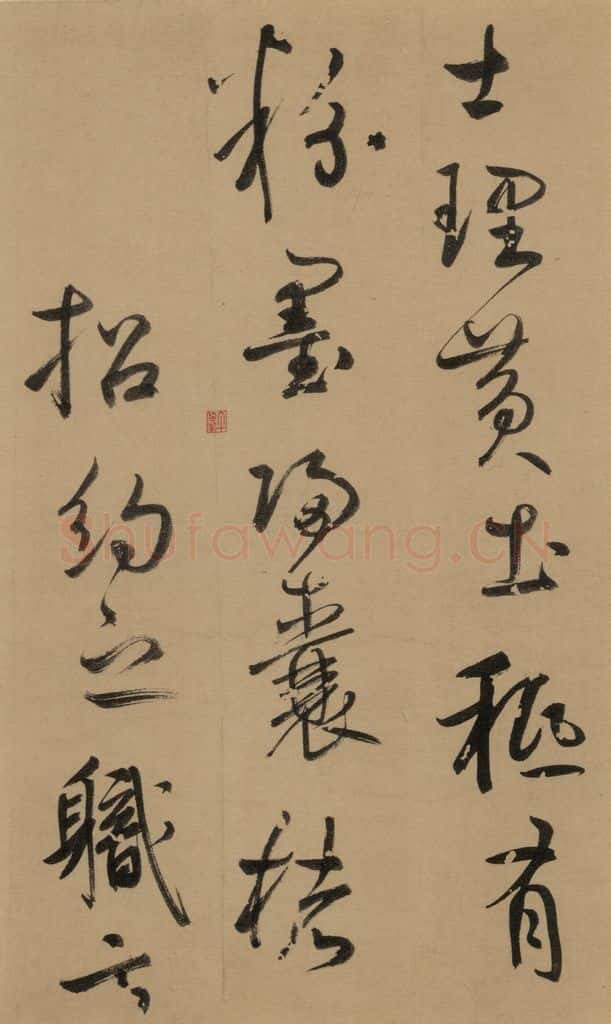 士埋黄土秖有
粉墨歸囊楮
招約之職方
Shufawang.CN